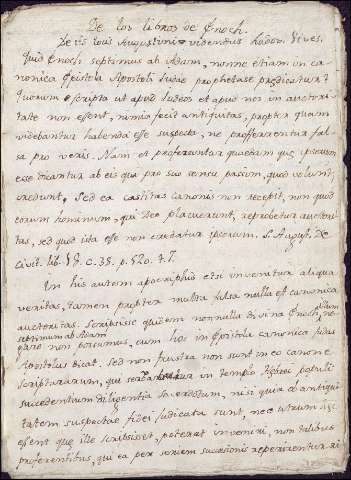 De los libros de Enoch.
De iis lovis Augustinus videndus Ludov. Vives.
Quid Enoch septimus ab Adam, nonne etiam in ca-
nonica Epistola Apostoli Judae prophetasse prędicatur?
Quorum scripta ut apud Judeos et apud nos in auctori-
tate non essent, nimia fecit antiquitas, propter quam
videbantur habenda esse suspecta, ne profferrentur fal-
sa pro veris. Nam et proferuntur quaedam quę ipsorum
esse dicantur ab eis qui pro suo sensu passim, quod volunt,
credunt. Sed ea castitas canonis non recepit, non quod
eorum hominum, qui Deo placuerunt, reprobetur auctori-
tas, sed quod ista esse non credantur ipsorum. S. August. De
Civit. lib. 18. c. 38. p. 520. t. 7.
In his autem apocriphis etsi invenitur aliqua
veritas, tamen propter multa falsa nulla est canonica
auctoritas. Scripsisse quidem nonnulla divina Enoch, illum
septimum ab Adam, ne-
gare non possumus, cum hoc in Epistola canonica Judas
Apostolus dicat. Sed non frustra non sunt in eo canone
Scripturarum, qui servabatur in templo Hebrei populi
succedentium diligentia Sacerdotum, nisi quia ob antiqui-
tatem suspectae fidei judicata sunt, nec utrum hęc
essent quę ille scripsisset, poterat inveniri, non talibus
proferentibus, qui ea per seriem sucesionis reperirentur ri